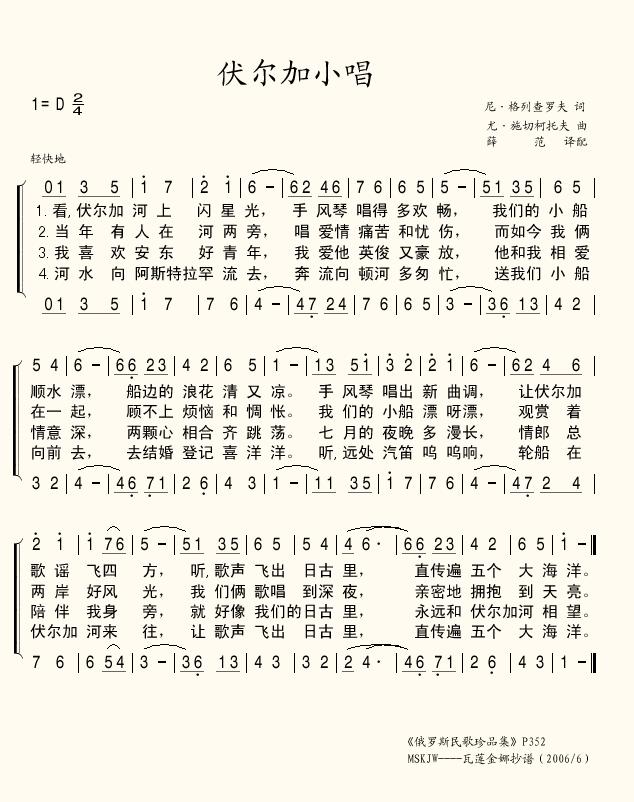 伏尔加小唱
1=D 2/4
尼·格列查罗夫 词
尤·施切柯托夫 曲
薛 范 译配
轻快地
01 3 5 | 1 7 | 2 1 | 6 - | 62 46 | 7 6 | 6 5 | 5 - | 51 35 | 6 5 |
1.看,伏尔加 河上 闪星光, 手风琴唱得多欢畅, 我们的小船
2.当年 有人在 河两旁, 唱爱情痛苦和忧伤, 而如今我俩
3.我喜 欢安东 好青年, 我爱他英俊又豪放, 他和我相爱
4.河水 向阿斯特拉罕流去, 奔流向顿河多匆忙, 送我们小船
01 3 5 | 1 7 | 7 6 | 4 - | 47 24 | 7 6 | 6 5 | 3 - | 36 13 | 4 2 |
5 4 | 6 - | 66 23 | 4 2 | 6 5 | 1 - | 13 51 | 3 2 | 2 1 | 6 - | 62 4 6 |
顺水漂, 船边的浪花清又凉。 手风琴唱出新曲调, 让伏尔加
在一起, 顾不上烦恼和惆怅。 我们的小船漂呀漂, 观赏着
情意深, 两颗心相合齐跳荡。 七月的夜晚多漫长, 情郎总
向前去, 去结婚登记喜洋洋。 听,远处汽笛呜呜响, 轮船在
3 2 | 4 - | 46 71 | 2 6 | 4 3 | 1 - | 11 35 | 1 7 | 7 6 | 4 - | 47 2 4 |
2 1 | 1 76 | 5 - | 51 35 | 6 5 | 5 4 | 4 6· | 66 23 | 4 2 | 6 5 | 1 - ‖
歌谣 飞四方, 听,歌声飞出日古里, 直传遍五个大海洋。
两岸 好风光, 我们俩歌唱到深夜, 亲密地拥抱到天亮。
陪伴 我身旁, 就好像我们的日古里, 永远和伏尔加河相望。
伏尔加河来往, 让歌声飞出日古里, 直传遍五个大海洋。
7 6 | 6 54 | 3 - | 36 13 | 4 3 | 3 2 | 2 4· | 46 71 | 2 6 | 4 3 | 1 - ‖
《俄罗斯民歌珍品集》P352
MSKJW----瓦莲金娜抄谱(2006/6)